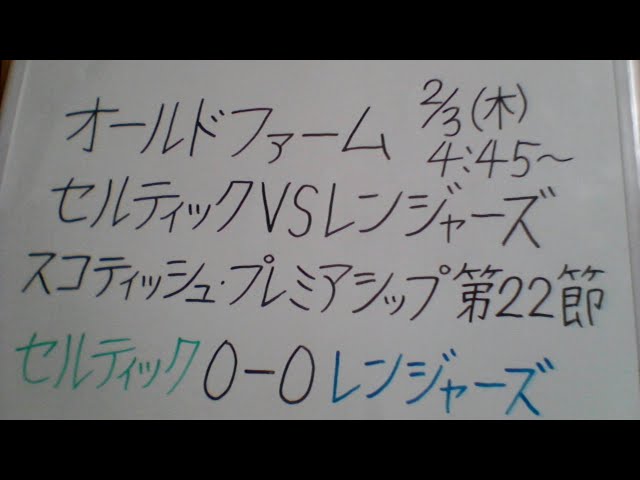 オールドファーム 2/3(木)
4:45〜
セルティックVSレンジャーズ
スコティッシュ・プレミアシップ第22節
セルティック0-0レンジャーズ